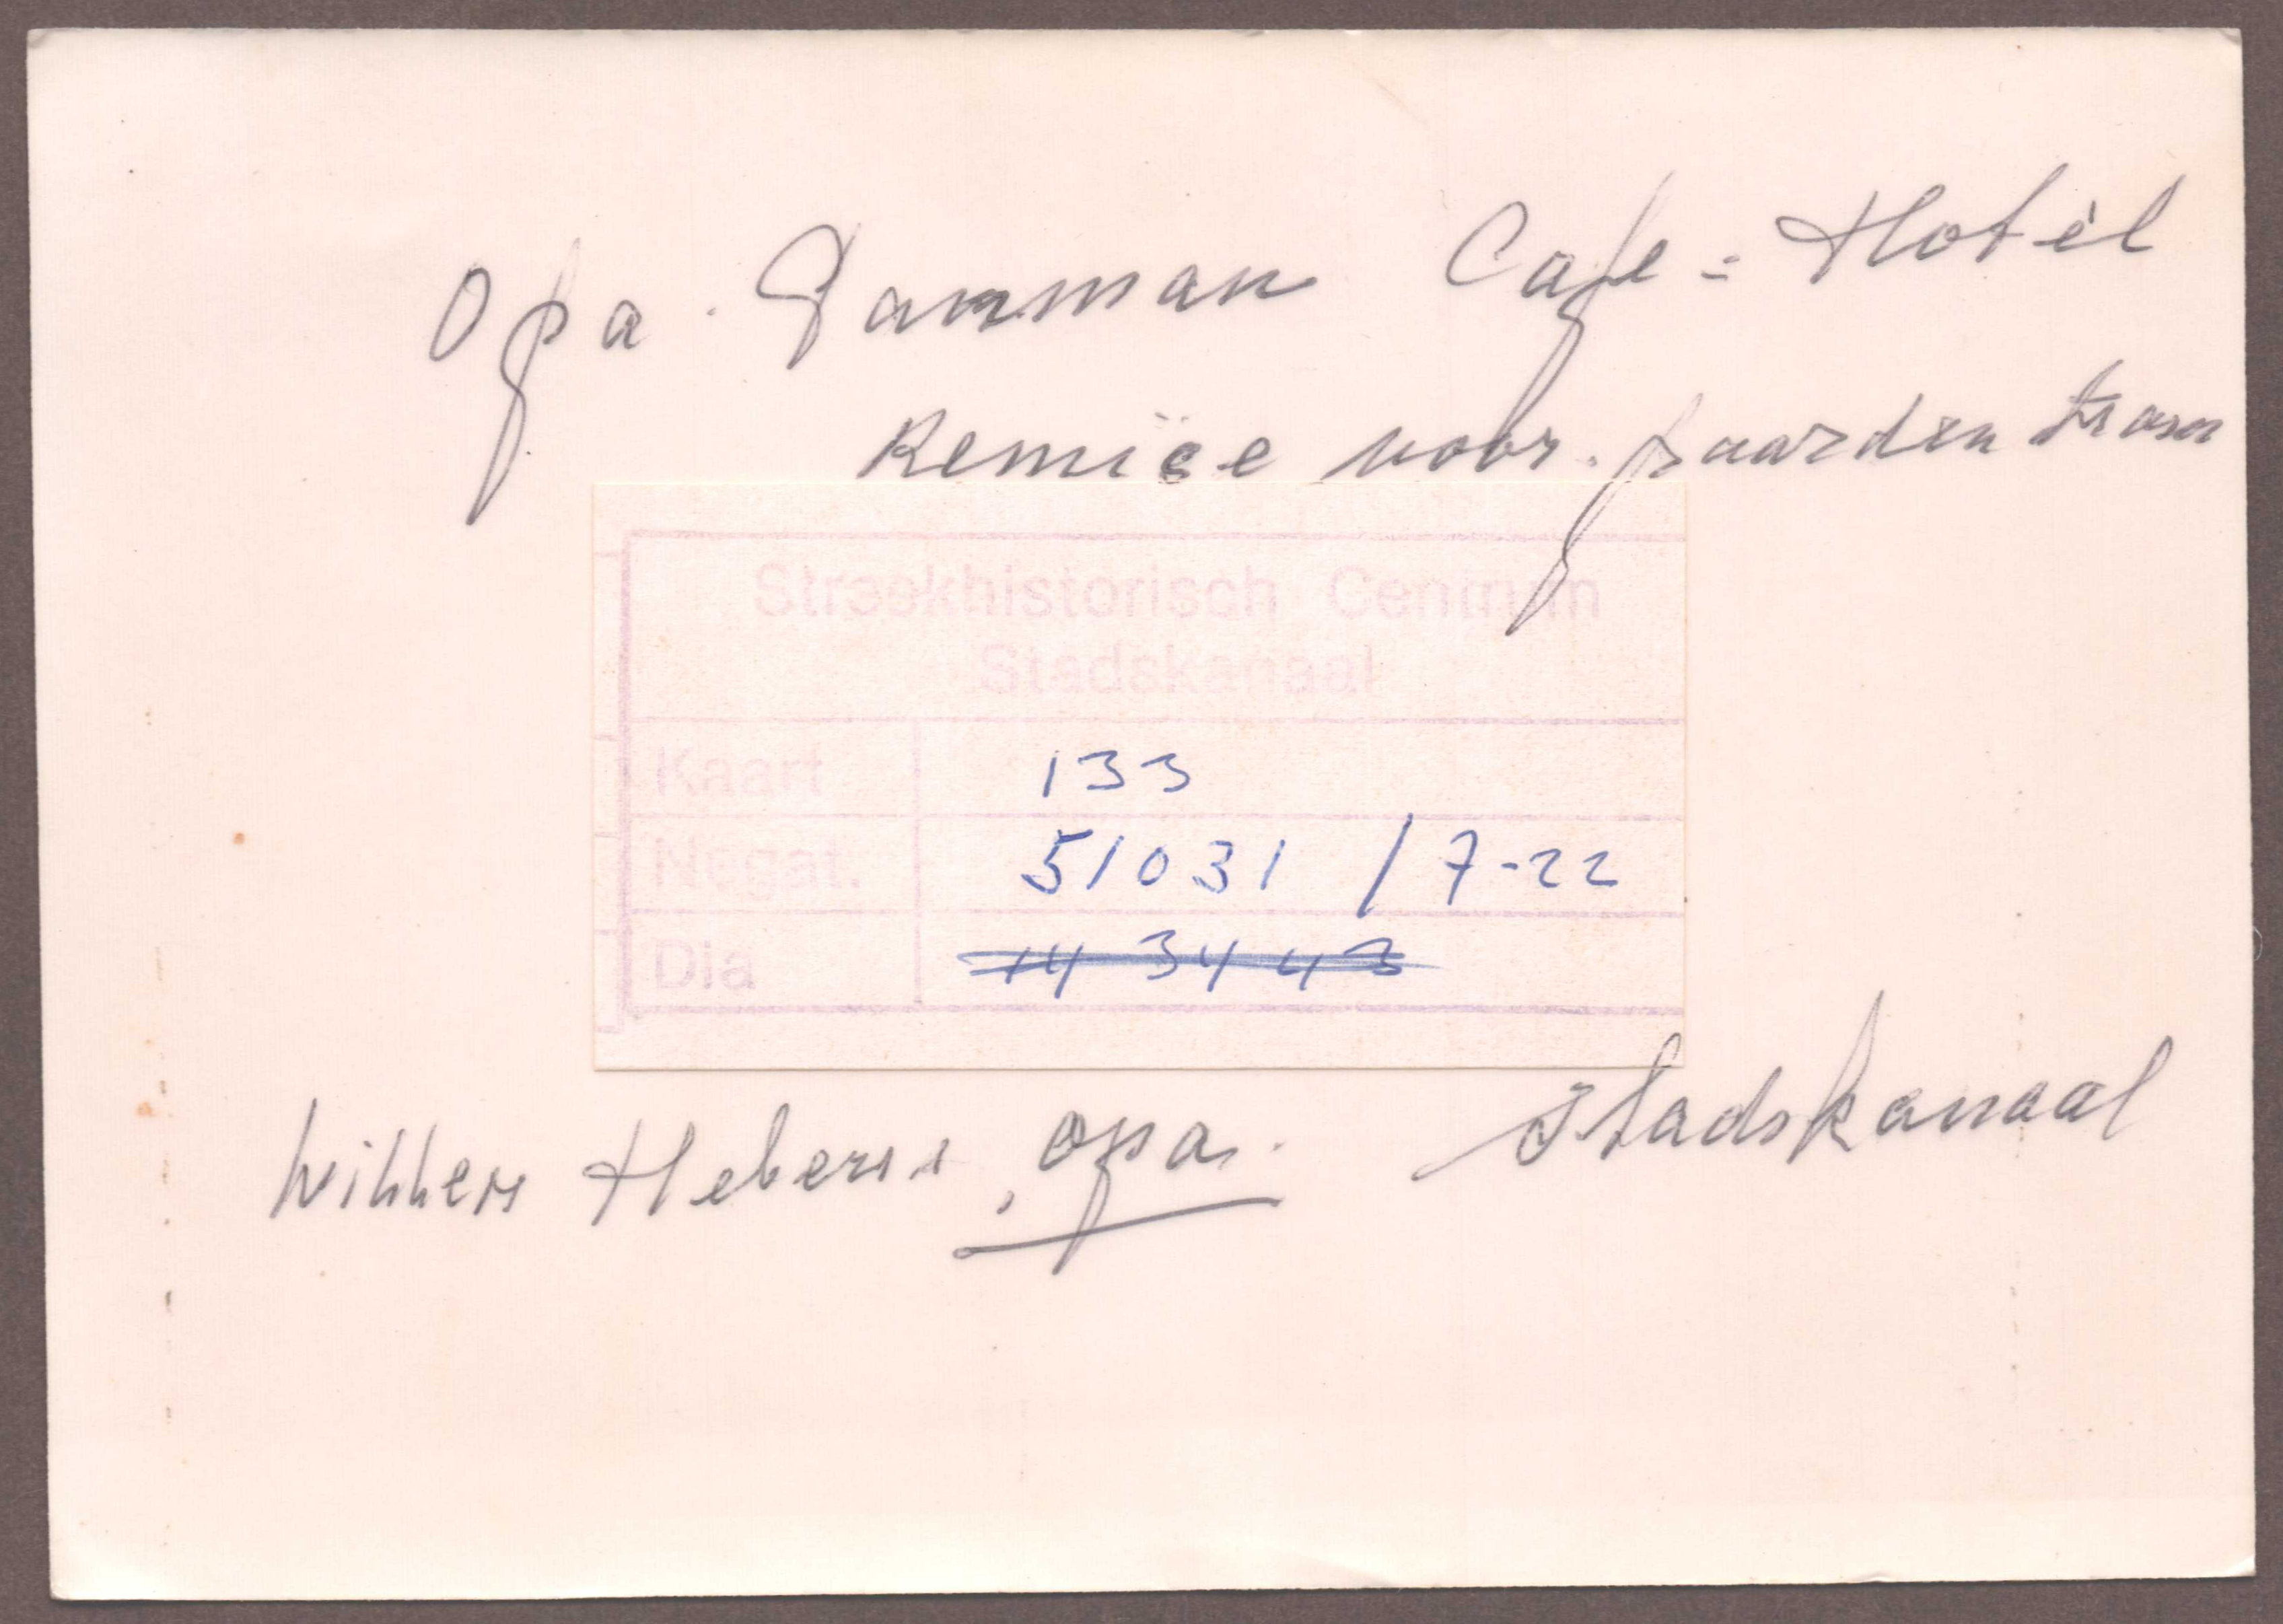 Opa. Panman Cafe = Hotèl
Remise voor. paarden tram
Streekhistorisch Centrum
Stadskanaal
Kaart 133
Negat. 51031 / 7-22
Dia 14 34 43
Willem opa. Stadskanaal